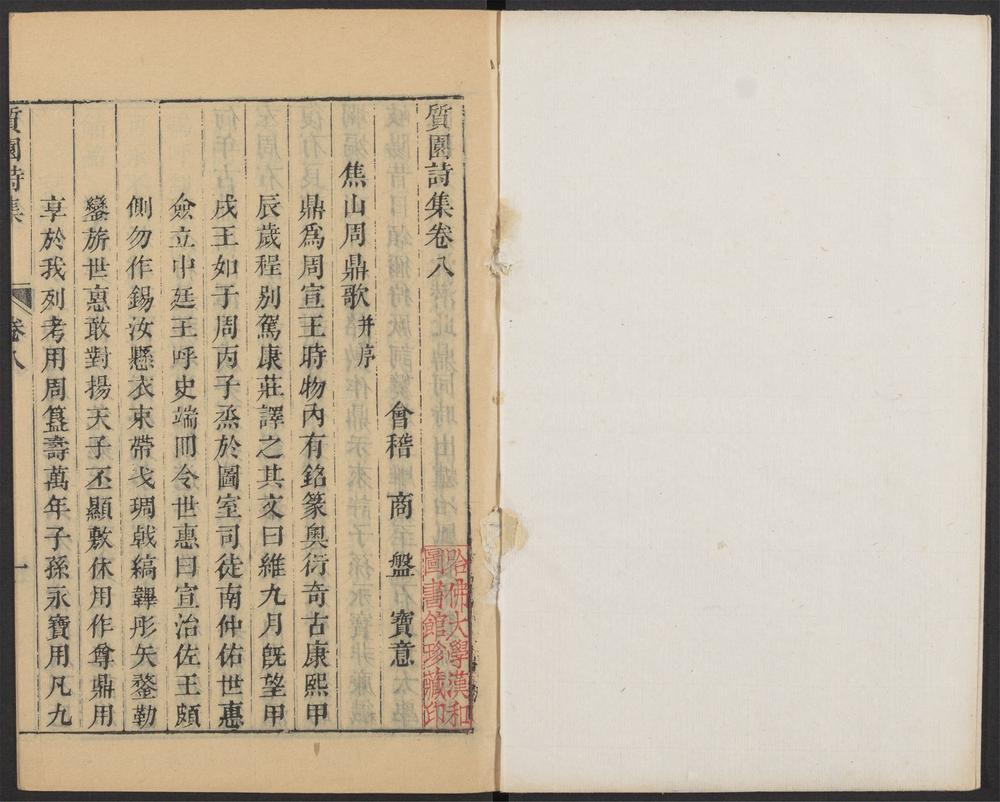 質園詩集卷八
會稽 商 盤 寶意
焦山周鼎歌并序
鼎爲周宣王時物內有銘篆奧衍奇古康熙甲
辰歲程别駕康莊譯之其文曰維九月旣望甲
戌王如于周丙子烝於圖室司徒南仲佑世惠
僉立中廷王呼史端冊令世惠曰宣治佐王頗
側勿作錫汝懸衣束帶戈琱戟縞韠彤矢鋚勒
鑾旂世惠敢對揚天子丕顯敷休用作尊鼎用
享於我列考用周簋壽萬年子孫永寶用凡九
質園詩集
卷八
一
哈佛大學漢和
圖書館珍藏印